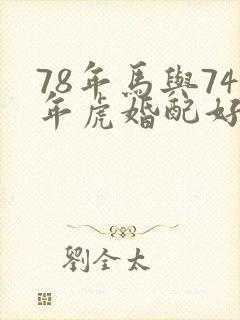 78年馬與74
年虎婚配好
劉全太